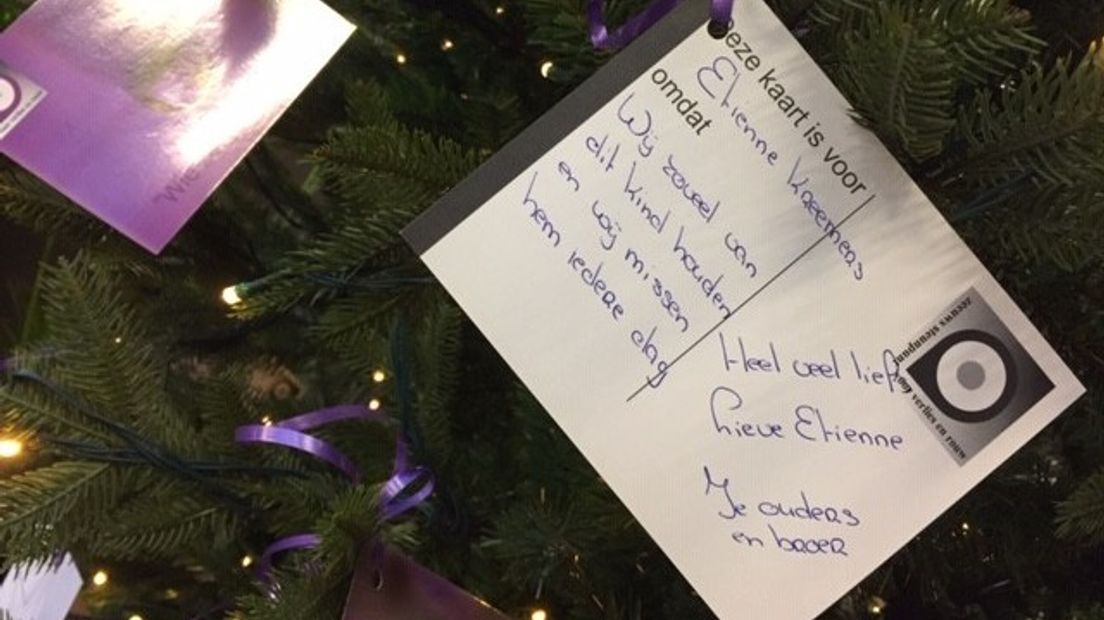 Deze kaart is voor
Etienne Kreemers
omdat
Wij zoveel van
dit kind houden
en wij missen
hem iedere dag
Heel veel liefs
lieve Etienne
Je ouders
en broer
zeeuws steunpunt
verlies en rouw
"Wie